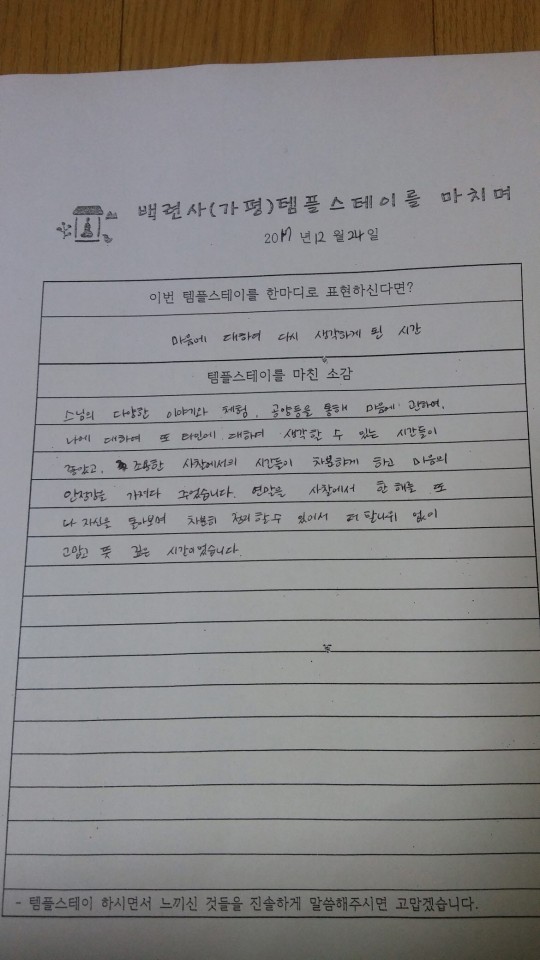 백련사(가평)템플스테이를 마치며
2017년 12월 24일
이번 템플스테이를 한마디로 표현하신다면?
마음에 대하여 다시 생각하게 된 시간
템플스테이를 마친 소감
스님의 다양한 이야기와 체험, 공양등을 통해 마음에 관하여,
나에 대하여 또 타인에 대하여 생각할 수 있는 시간들이
좋았고, 조용한 사찰에서의 시간들이 차분하게 하고 마음의
안정감을 가져다 주었습니다. 연말을 사찰에서 한 해를 또
나 자신을 돌아보며 차분히 정리할 수 있어서 더 할나위 없이
고맙고 뜻 깊은 시간이었습니다.
- 템플스테이 하시면서 느끼신 것들을 진솔하게 말씀해주시면 고맙겠습니다.